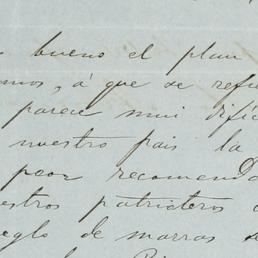 bueno el plan
mos, á que se refie
parece mui difíc
nuestro pais la
peor recomenda
estros patrioteros
eglo de marras